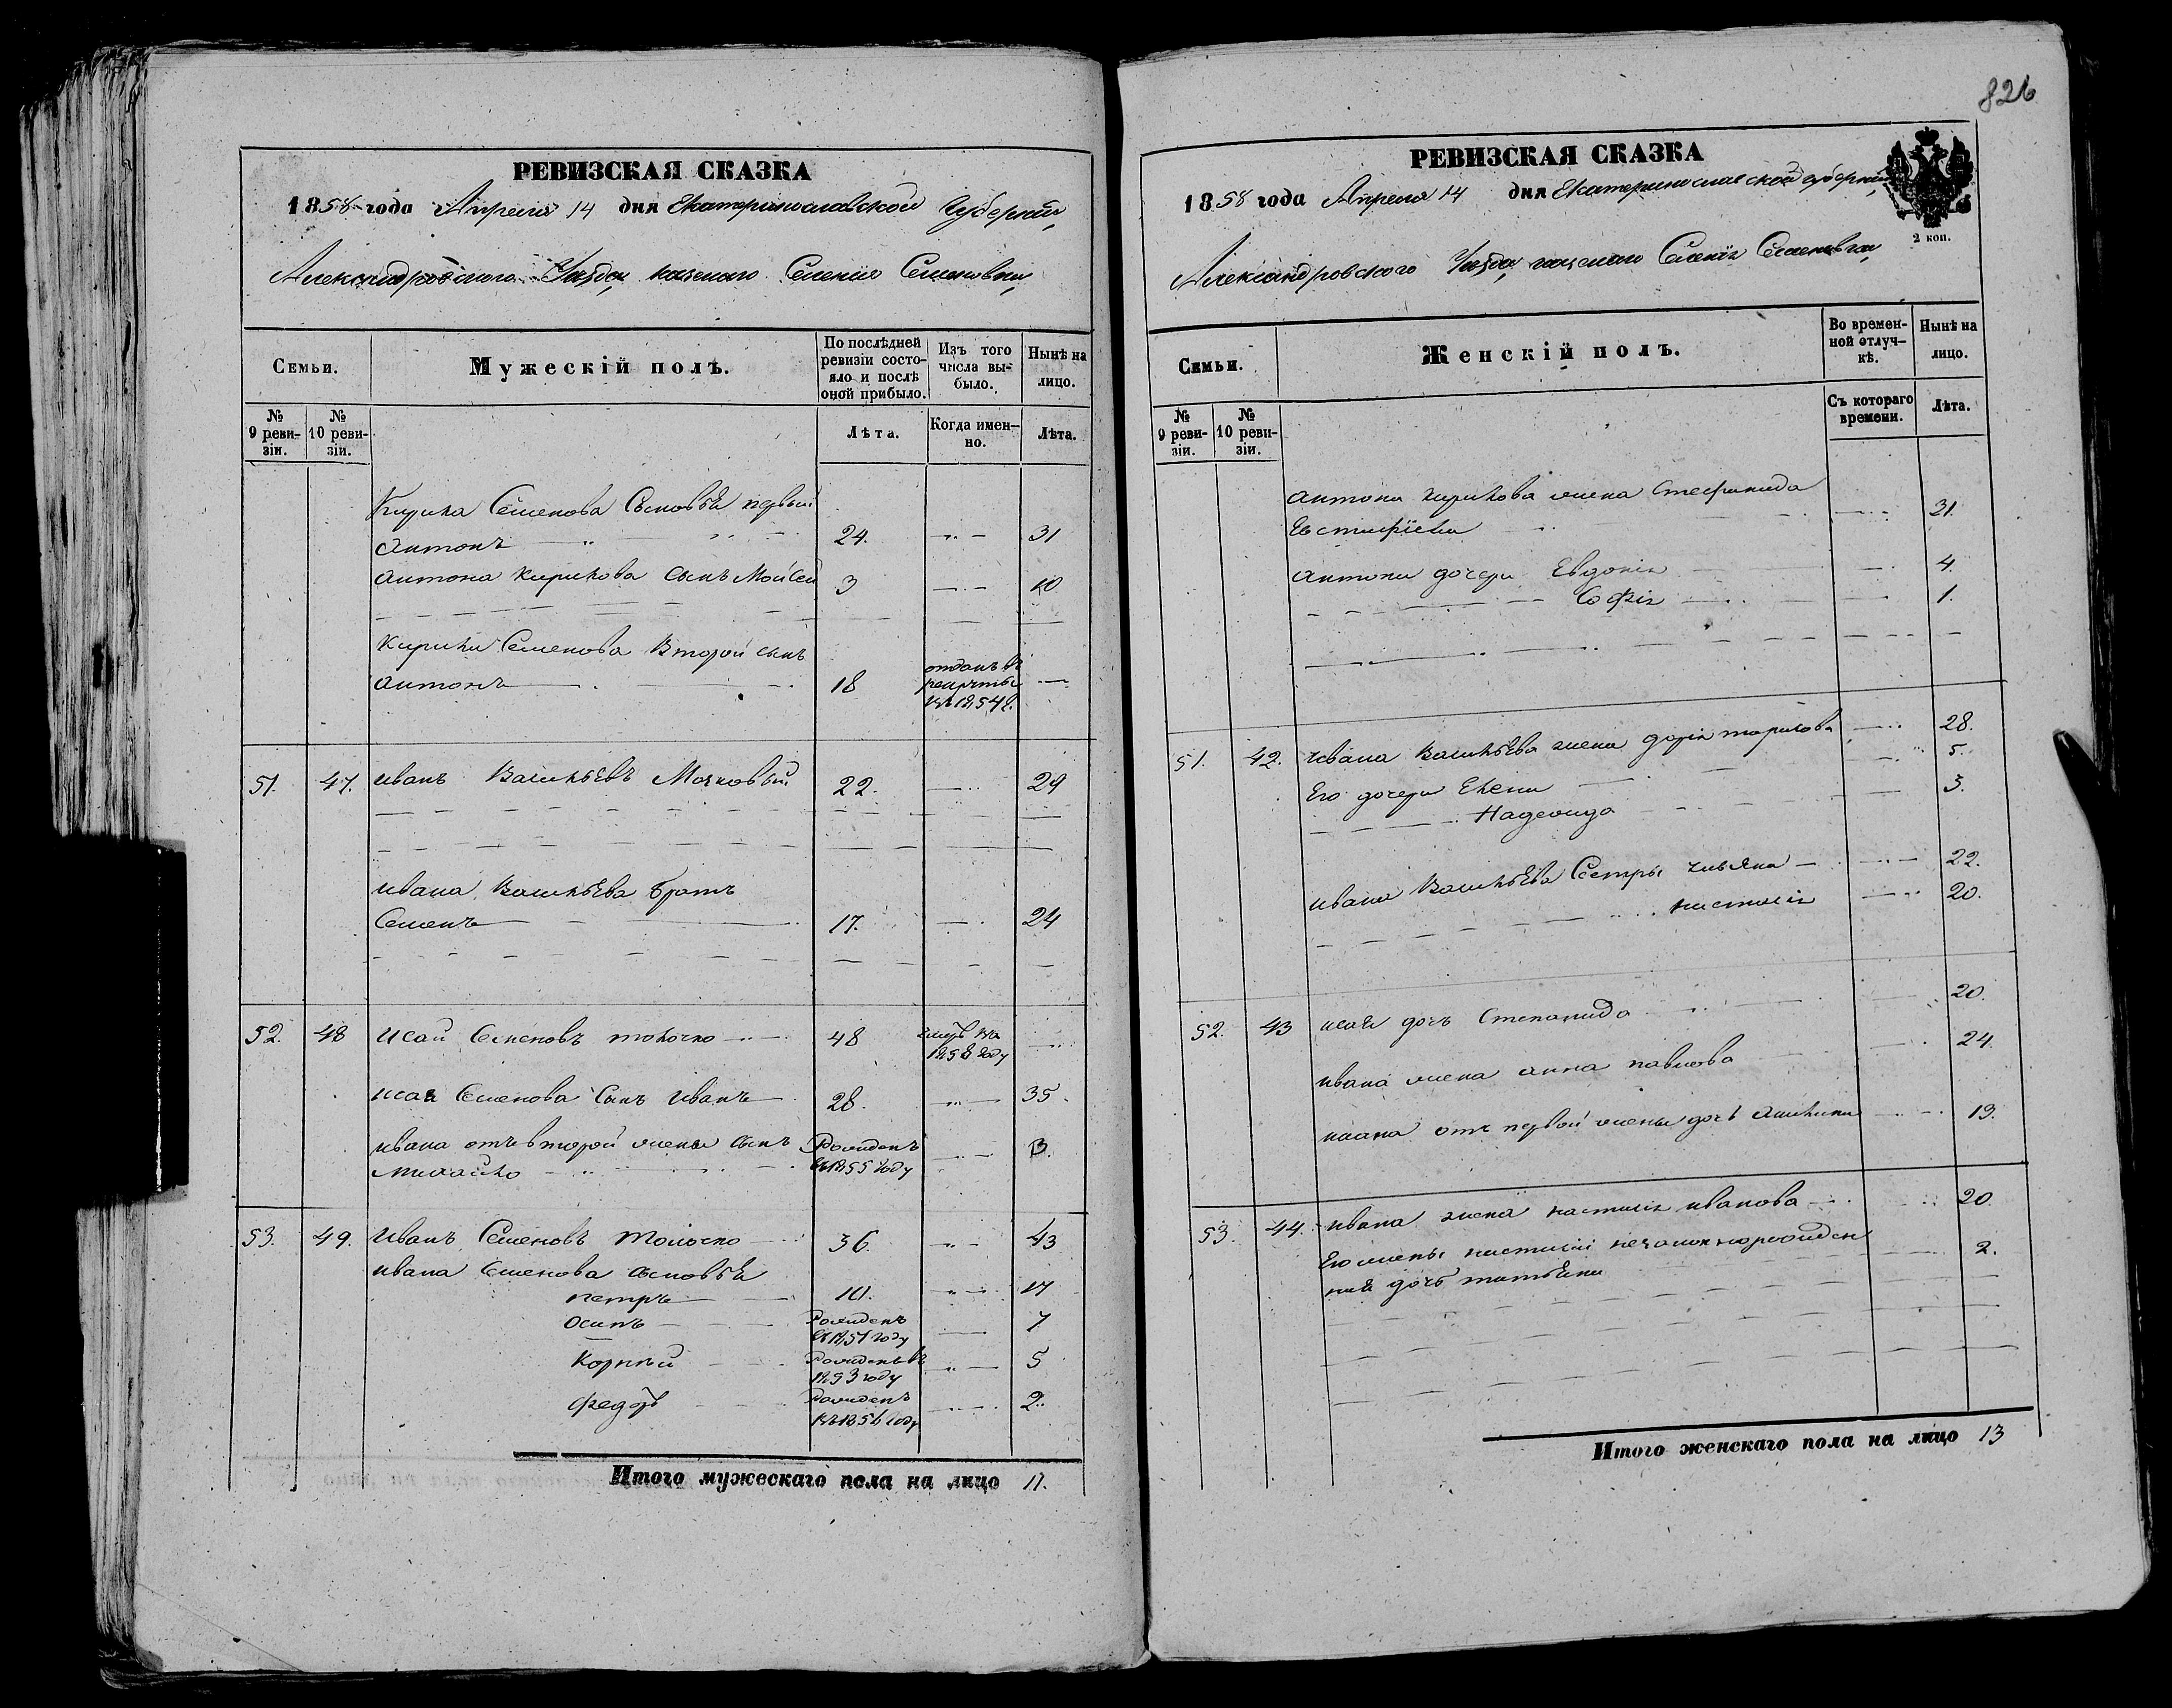 826
РЕВИЗСКАЯ СКАЗКА
1858 года Апреля 14 дня Екатеринославской Губерніи,
Александровского Уезда казеннаго Селенія Семеновки
Семьи.
Мужескій полъ.
По послѣдней ревизіи состояло и послѣ оной прибыло.
Изъ того числа выбыло.
Нынѣ на лицо.
№ 9 ревизіи.
№ 10 ревизіи.
Лѣта.
Когда именно.
Лѣта.
Кирика Семенова Сыновья первый
Антонъ 24. 31
Антона Кирикова сынъ Мойсей 3 10
Кирика Семенова Второй сынъ
Антонъ 18 отданъ въ рекруты въ 1854 г.
51. 47. Иванъ Васильевъ Мачковый 22. 29
Ивана Васильева братъ
Семенъ 17. 24
52. 48 Исай Семеновъ толочко 48 умеръ въ 1858 году
Исая Семенова Сынъ Иванъ 28. 35.
Ивана отъ второй жены сынъ Рожденъ
Михайло въ 1855 году 3.
53. 49. Иванъ Семеновъ Толочко 36. 43
Ивана Семенова сыновья
петръ 10. 17
Осипъ Рожденъ въ 1851 году 7
Корней Рожденъ въ 1853 году 5
Федоръ Рожденъ въ 1856 году 2.
Итого мужескаго пола на лицо 11.
РЕВИЗСКАЯ СКАЗКА
1858 года Апреля 14 дня Екатеринославской губерніи,
Александровского Уезда казеннаго Селенія Семеновки
2 коп.
Семьи.
Женскій полъ.
Во временной отлучкѣ.
Нынѣ на лицо.
№ 9 ревизіи.
№ 10 ревизіи.
Съ котораго времени.
Лѣта.
Антона Кирикова жена Стефанида
Евстафіева 31.
Антона дочери Евдокія 4.
Софія 1.
51. 42. Ивана Васильева жена дарія 28.
Его дочери Елена 5.
Надежда 3.
Ивана Васильева Сестры ульяна 22.
настасія 20.
52. 43 Исая дочь Степанида 20.
Ивана жена анна павлова 24.
Ивана отъ первой жены дочь Акилина 13.
53. 44. Ивана жена настасія иванова 20.
Его жены настасіи незаконнорожден
ная дочь татьяна 2.
Итого женскаго пола на лицо 13